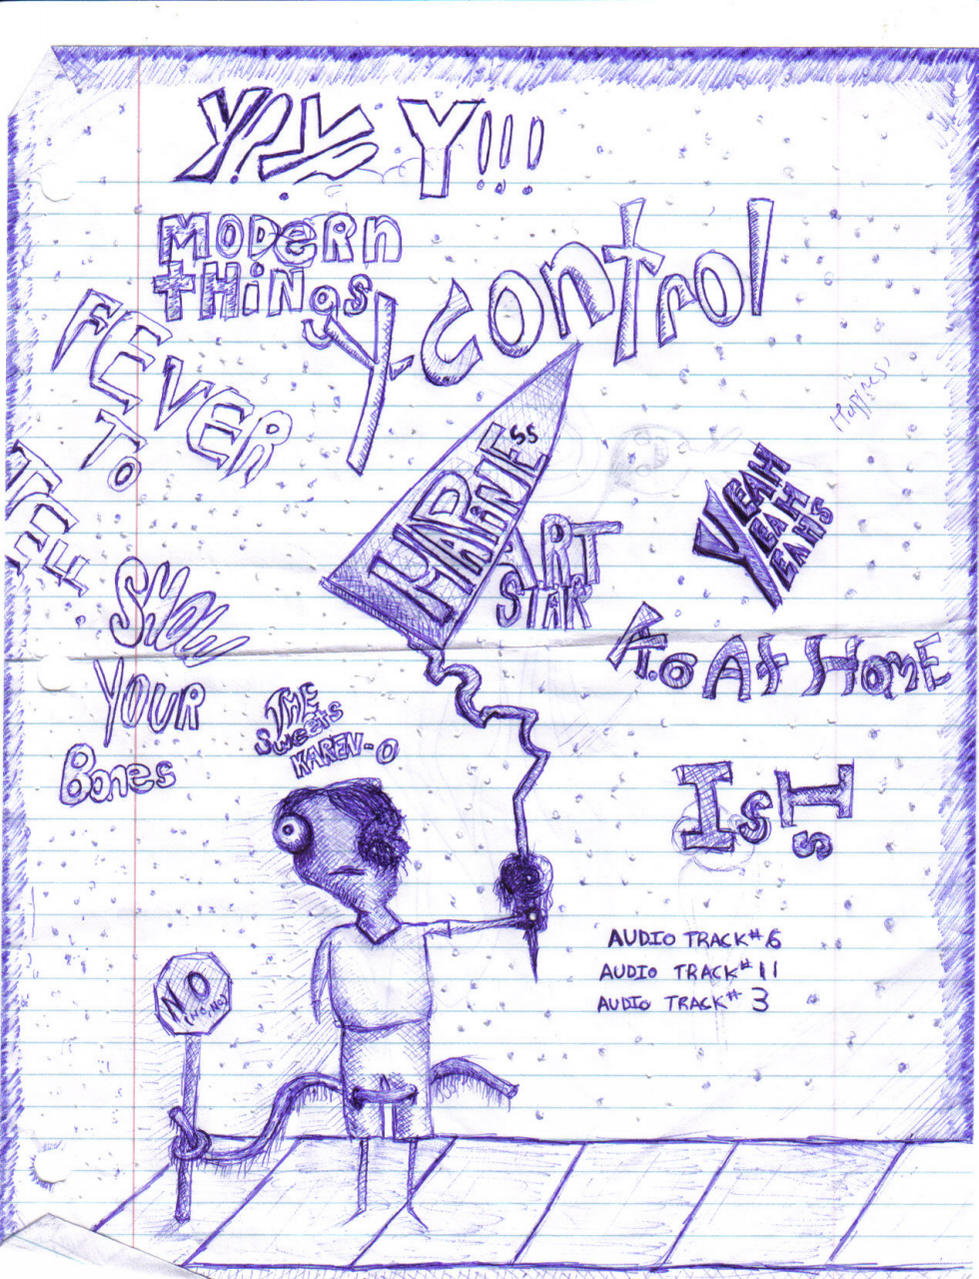 Y Control
MODERN
THiNGS
FEVER
To
TELL
HAPPiNESS
ART
STAR
YEAH
YEAH
YEAHS
SHOW
YOUR
Bones
K.O At HOME
THE
Sweets
KAREN-O
Is
Is
AUDIO TRACK#6
AUDIO TRACK#11
AUDIO TRACK#3
NO
(NO, NO)
Happiness